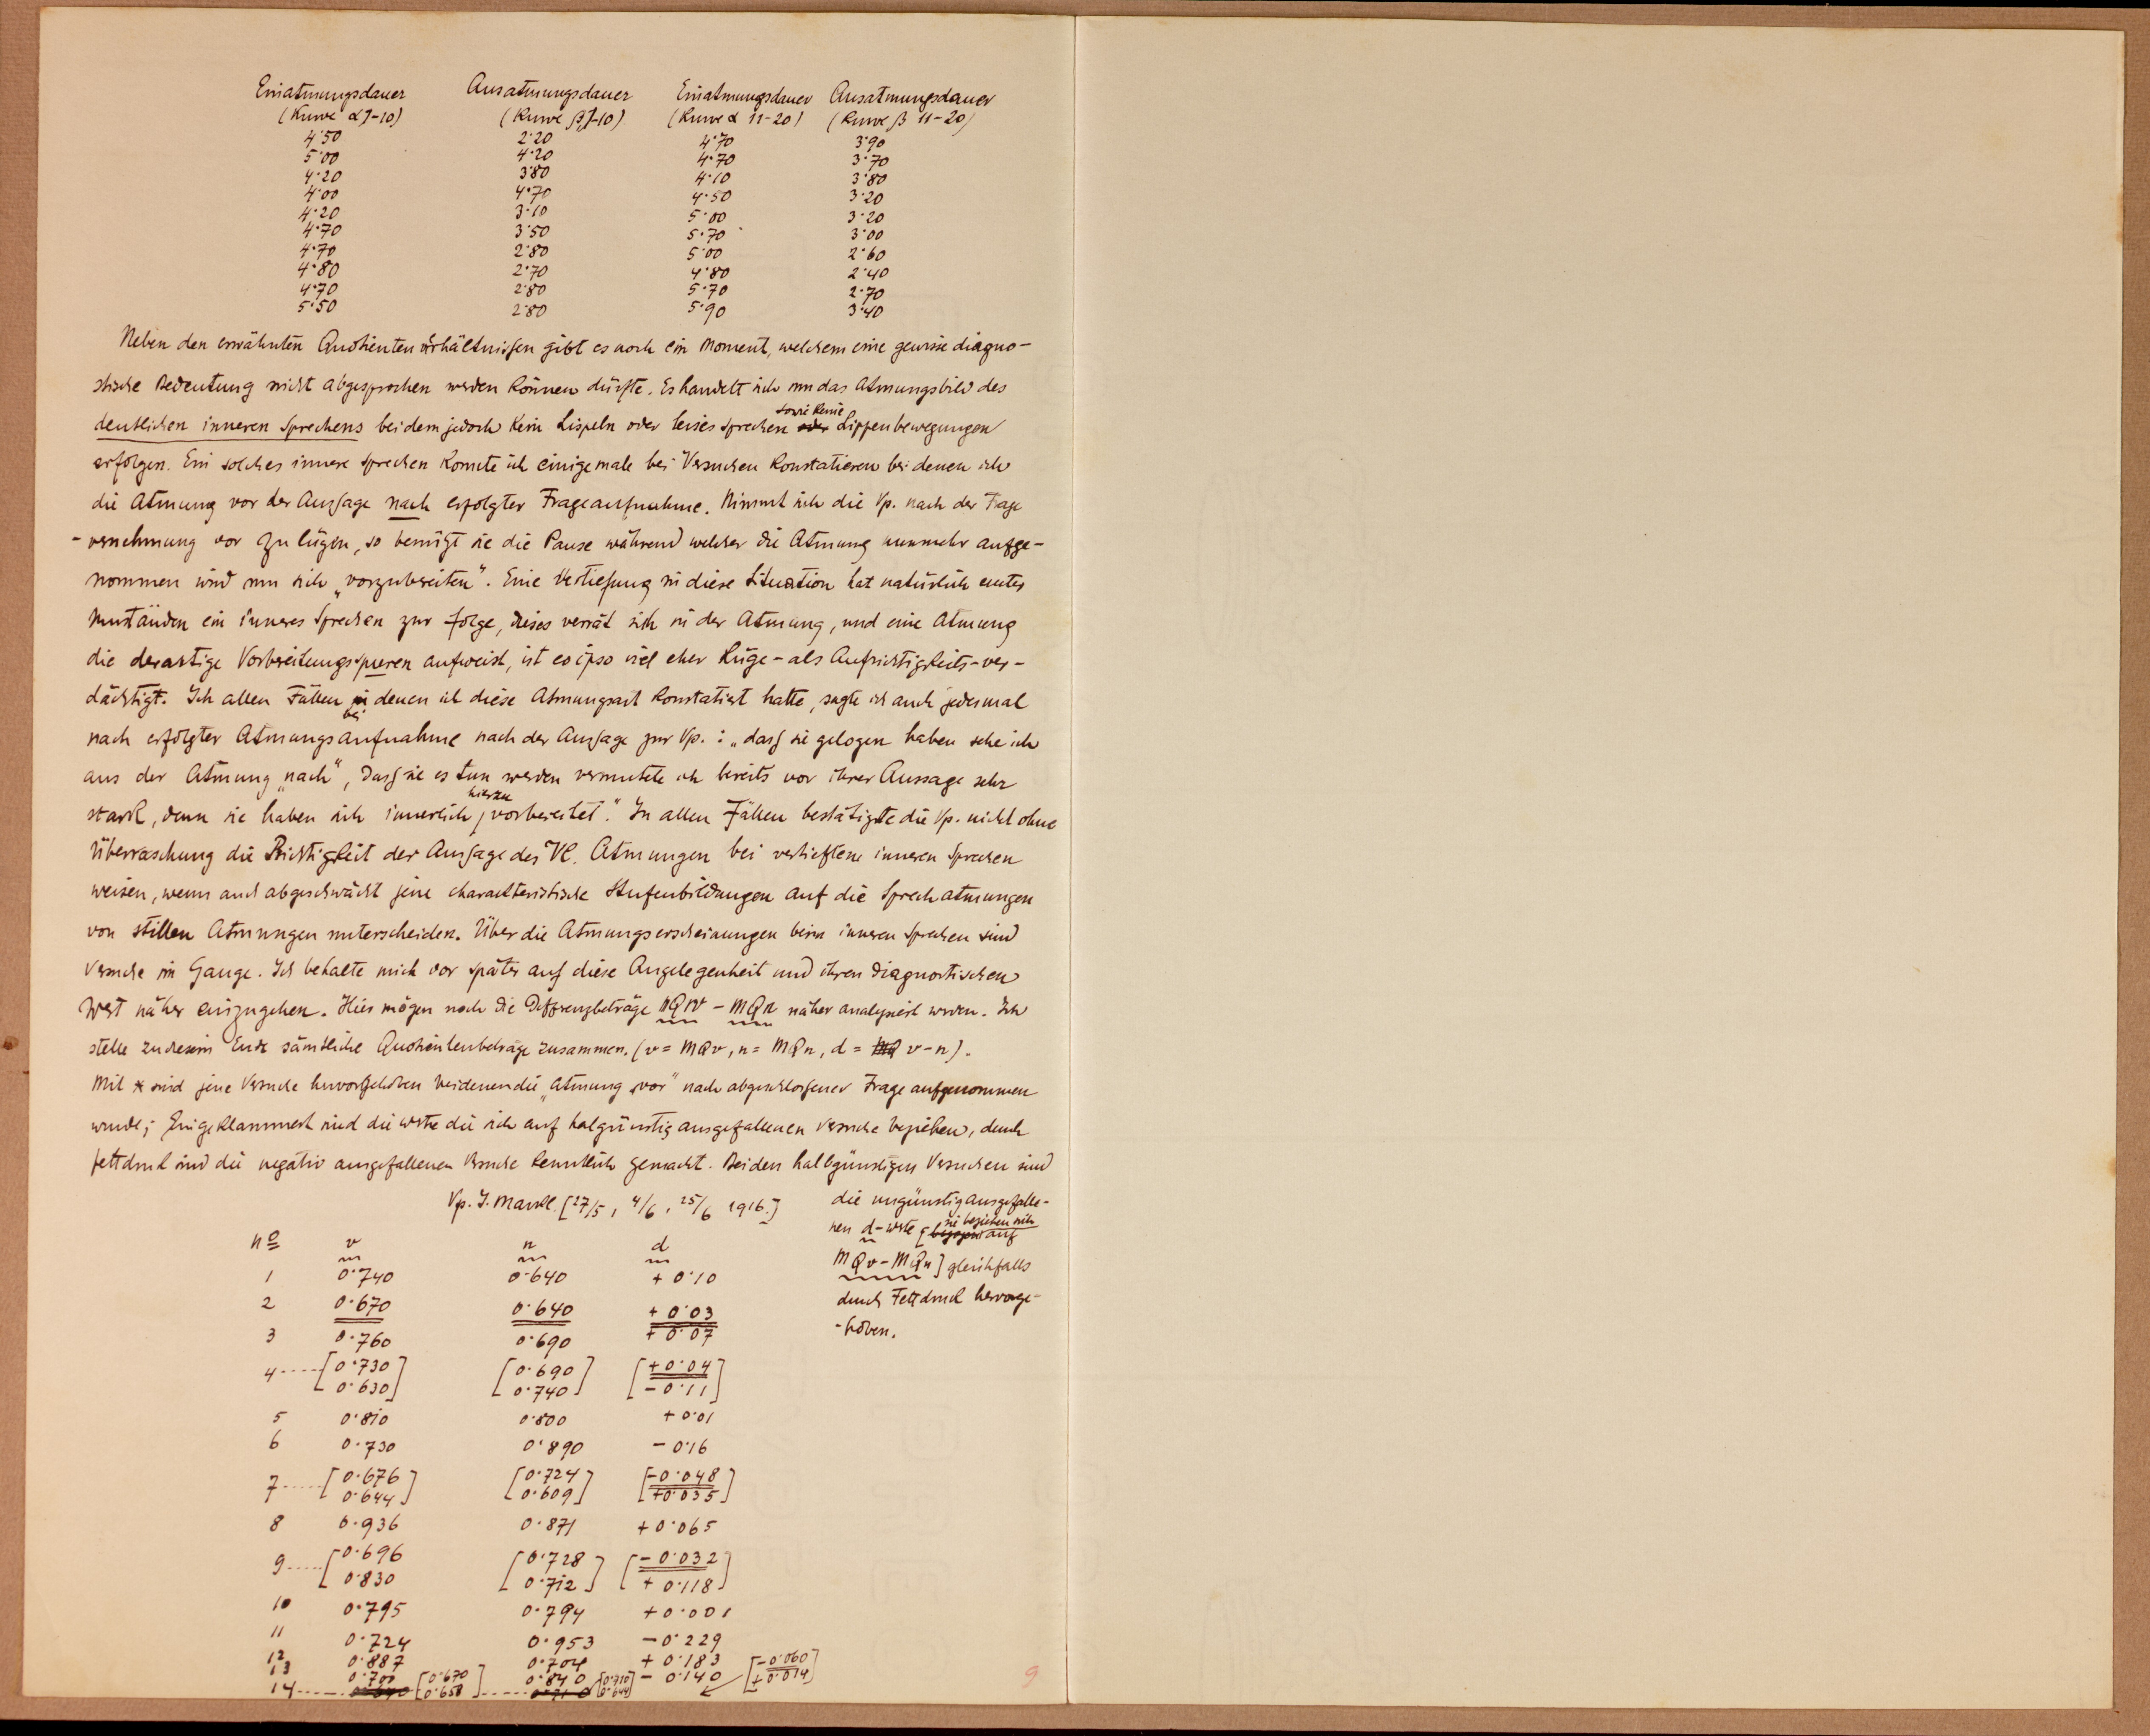 Einatmungsdauer Ausatmungsdauer Einatmungsdauer Ausatmungsdauer
(Kurve α 1-10) (Kurve β 1-10) (Kurve α 11-20) (Kurve β 11-20)
4·50 2·20 4·70 3·90
5·00 4·20 4·70 3·70
4·20 3·80 4·10 3·80
4·00 4·70 4·50 3·20
4·20 3·10 5·00 3·20
4·70 3·50 5·70 3·00
4·70 2·80 5·00 2·60
4·80 2·70 4·80 2·40
4·70 2·80 5·70 2·70
5·50 2·80 5·90 3·40
Neben den erwähnten Quotientenverhältnissen gibt es noch ein Moment, welchem eine gewisse diagno-
stische Bedeutung nicht abgesprochen werden können dürfte. Es handelt sich um das Atmungsbild des
deutlichen inneren Sprechens bei dem jedoch kein Lispeln oder leises sprechen sowie keine Lippenbewegungen
erfolgen. Ein solches innere sprechen konnte ich einigemale bei Versuchen konstatieren bei denen ich
die Atmung vor der Aussage nach erfolgter Frageaufnahme. Nimmt sich die Vp. nach der Frage
-vernehmung vor zu lügen, so benützt sie die Pause während welcher die Atmung nunmehr aufge-
nommen wird um sich „vorzubereiten". Eine Vertiefung in diese Situation hat natürlich unter
Umständen ein inneres Sprechen zur folge, dieses verrät sich in der Atmung, und eine Atmung
die derartige Vorbereitungsspuren aufweist, ist eo ipso viel eher Lüge- als Aufrichtigkeits-ver-
dächtigt. Ich allen Fällen bei denen ich diese Atmungsart konstatiert hatte, sagte ich auch jedesmal
nach erfolgter Atmungsaufnahme nach der Aussage zur Vp.: „dass sie gelogen haben sehe ich
aus der Atmung „nach", dass sie es tun werden vermutete ich bereits vor ihrer Aussage sehr
stark, denn sie haben sich innerlich hierzu vorbereitet." In allen Fällen bestätigte die Vp. nicht ohne
Überraschung die Richtigkeit der Aussage des Vl. Atmungen bei vertieftem inneren Sprechen
weisen, wenn auch abgeschwächt jene charakteristische Stufenbildungen auf die Sprechatmungen
von stillen Atmungen unterscheiden. Über die Atmungserscheinungen beim inneren Sprechen sind
Versuche im Gange. Ich behalte mich vor später auf diese Angelegenheit und ihren diagnostischen
Wert näher einzugehen. Hier mögen noch die Differenzbeträge MQv - MQn näher analysiert werden. Ich
stelle zu diesem Ende sämtliche Quotientenbeträge zusammen. (v = MQv, n = MQn, d = v-n).
Mit * sind jene Versuche hervorgehoben bei denen die „Atmung „vor" nach abgeschlossener Frage aufgenommen
wurde; Eingeklammert sind die werte die sich auf halgünstig ausgefallenen Versuche beziehen, durch
fettdruck sind die negativ ausgefallenen Versuche kenntlich gemacht. Bei den halbgünstigen Versuchen sind
die ungünstig ausgefalle-
nen d-werte [sie beziehen sich auf
MQv-MQn] gleichfalls
durch Fettdruck hervorge-
-hoben.
Vp. J. [27/5, 4/6, 25/6 1916.]
nº v n d
1 0·740 0·640 + 0·10
2 0·670 0·640 + 0·03
3 0·760 0·690 + 0·07
4----[0·730 [0·690] [+0·04]
0·630] 0·740] -0·11]
5 0·810 0·800 + 0·01
6 0·730 0·890 - 0·16
7----[0·676] [0·724] [-0·048]
0·644] 0·609] +0·035]
8 0·936 0·871 + 0·065
9----[0·696 [0·728] [-0·032]
0·830 0·712] + 0·118]
10 0·795 0·794 + 0·001
11 0·724 0·953 - 0·229
12 0·887 0·704 + 0·183
13 0·700 0·840 - 0·140
14---- [0·670] [0·710] [-0·060]
0·658] 0·644] +0·014]
9